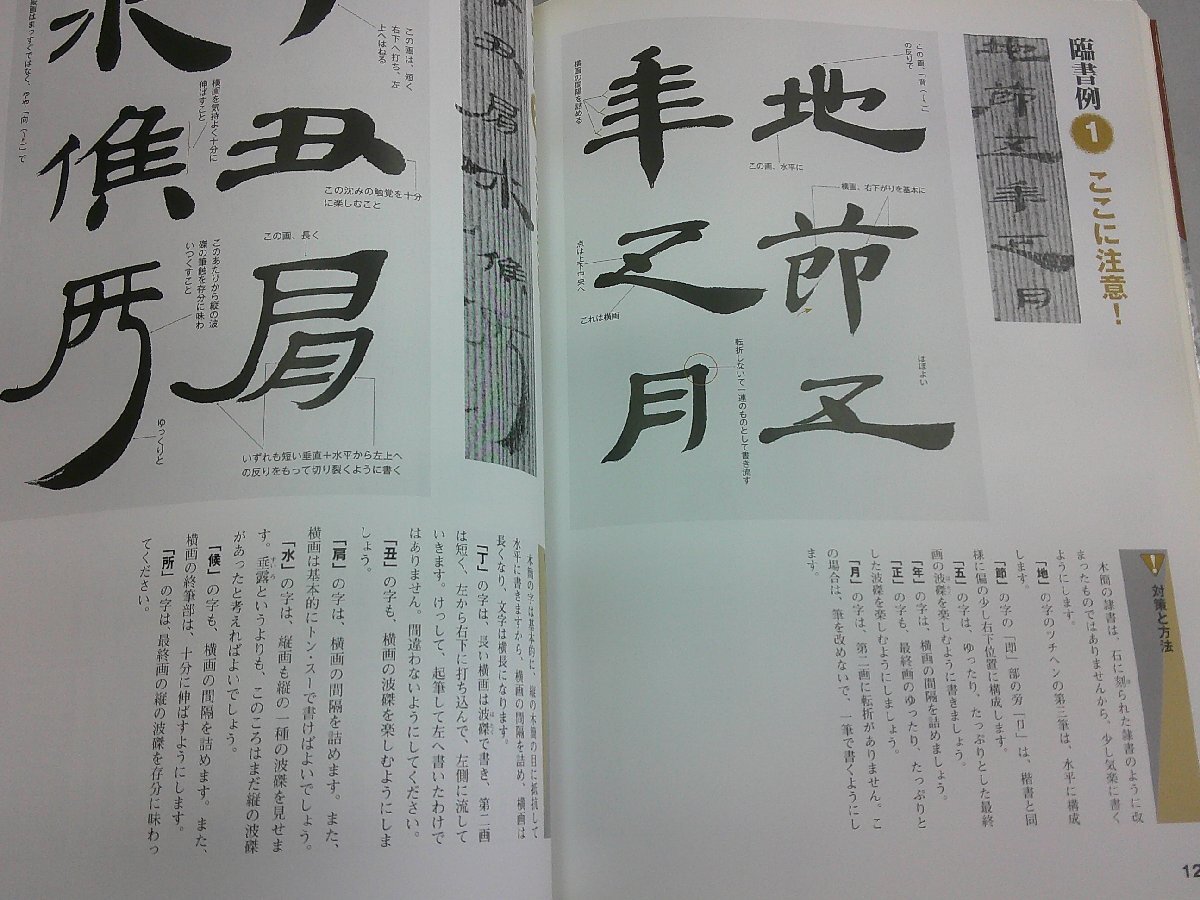 臨書例
1
ここに注意！
地節五年正月
地
節
五
年
正
月
この画、水平に
横画、右下がりを基本に
ほぼよい
横画の間隔を詰める
これは横画
転折しないで一連のものとして書き流す
対策と方法
木簡の隷書は、石に刻られた隷書のように改
まったものではありませんから、少し気楽に書く
ようにします。
「地」の字のツチヘンの第三筆は、水平に構成
します。
「節」の字の「即」部の旁「卩」は、楷書と同
様に偏の少し右下位置に構成します。
「五」の字は、ゆったり、たっぷりとした最終
画の波磔を楽しむように書きましょう。
「年」の字は、横画の間隔を詰めましょう。
「正」の字も、最終画のゆったり、たっぷりと
した波磔を楽しむようにしましょう。
「月」の字は、第二画に転折がありません。こ
の場合は、筆を改めないで、一筆で書くようにし
ます。
12
丑肩水候所
この画は、短く
右下へ打ち、左
上へはねる
丑
この沈みの触覚を十分
に楽しむこと
肩
この画、長く
いずれも短い垂直＋水平から左上へ
の反りをもって切り裂くように書く
水
候
横画を気持よく十分に
伸ばすこと
所
このあたりから縦の波
磔の筆触を存分に味わ
いつくすこと
ゆっくりと
木簡の字は基本的に、縦の木簡の目に抵抗して
水平に書きますから、横画の間隔を詰め、横画は
長くなり、文字は横長になります。
「丁」の字は、長い横画は波磔で書き、第二画
は短く、左から右下に打ち込んで、左側に流して
いきます。けっして、起筆して左へ書いたわけで
はありません。間違わないようにしてください。
「丑」の字も、横画の波磔を楽しむようにしま
しょう。
「肩」の字は、横画の間隔を詰めます。また、
横画は基本的にトン・スーで書けばよいでしょう。
「水」の字は、縦画も縦の一種の波磔を見せま
す。垂露というよりも、このころはまだ縦の波磔
があったと考えればよいでしょう。
「候」の字も、横画の間隔を詰めます。また、
横画の終筆部は、十分に伸ばすようにします。
「所」の字は、最終画の縦の波磔を存分に味わっ
てください。